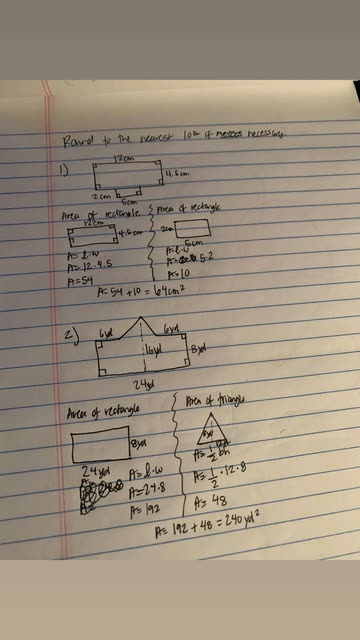 Round to the nearest 10th if necessary.
1)
12cm
4.5cm
2cm
5cm
Area of rectangle
Area of rectangle
12cm
4.5cm
2cm
5cm
A= l·w
A= l·w
A= 12·4.5
A= 5·2
A= 54
A= 10
A= 54 + 10 = 64cm²
2)
6yd
6yd
16yd
8yd
24yd
Area of rectangle
Area of triangle
8yd
8yd
24yd
A= 1/2 bh
A= l·w
A= 1/2 · 12·8
A= 24·8
A= 192
A= 48
A= 192 + 48 = 240yd²